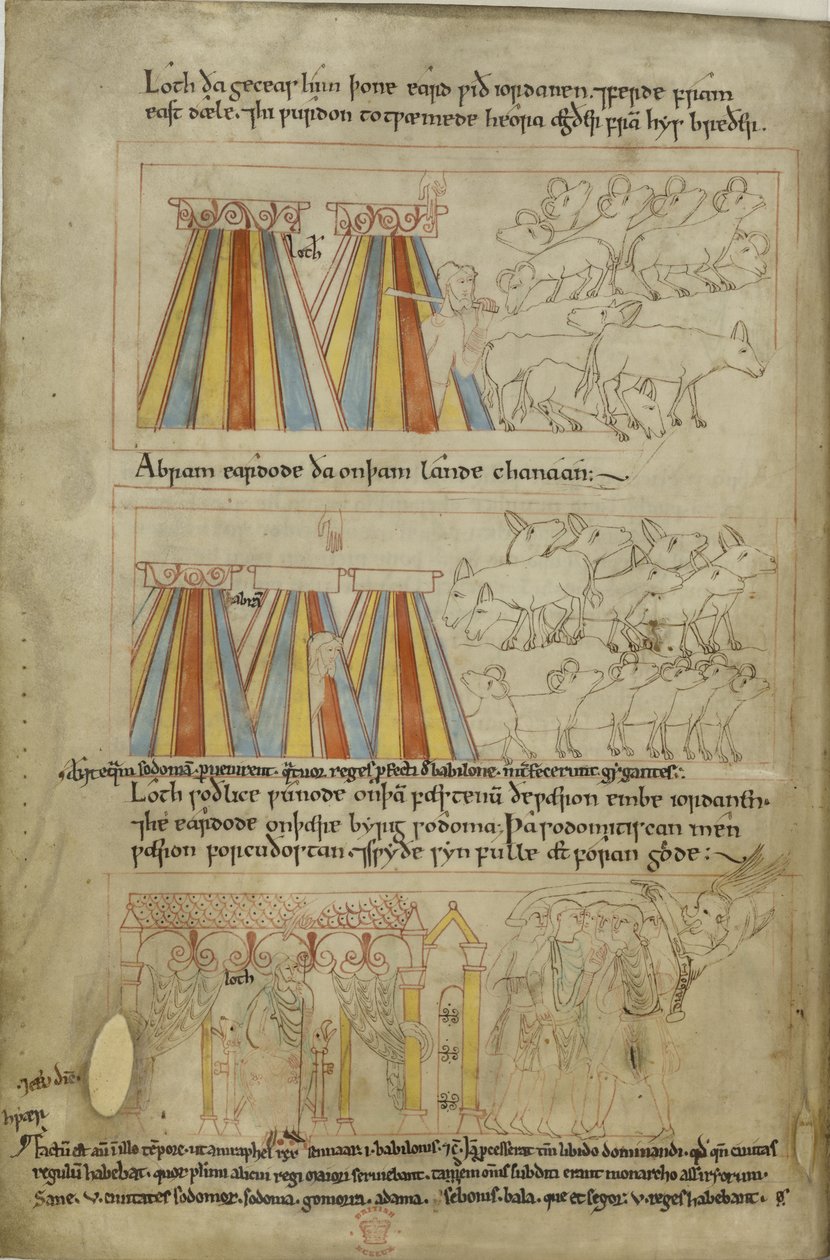 Loth ða geceas him þone eard ƿið iordanen. ⁊ ferde fram
east dæle. ⁊ hi ƿurdon totƿæmede heora ægðer frā hys breðer.
loth
Abram eardode ða on þam lande chanáán:
abrā
sodomā peruenirent. quatuor reges babilone. gygantes.
Loth soðlice ƿunode on þā fæstenū ðe ƿæron embe iordanen.
⁊ he eardode on þære byrig sodoma: Þa sodomitiscan men
ƿæron forcuðostan. ⁊ sƿyðe synfulle ætforan gode:
loth
Factū est aū in illo tēpore. ut amraphel rex sennaar. i. babilonis. ⁊c̄. processerat libido dominandi. ciuitas
regulum habebat. quor plimi alicui regi maiori seruiebant. tandem omnis subditi erant monarcho assiriorum.
Sane. v. ciuitates sodomor. sodoma. gomorra. adama. sebonis. bala. que et segor: v. reges habebant.
BRITISH
MUSEUM